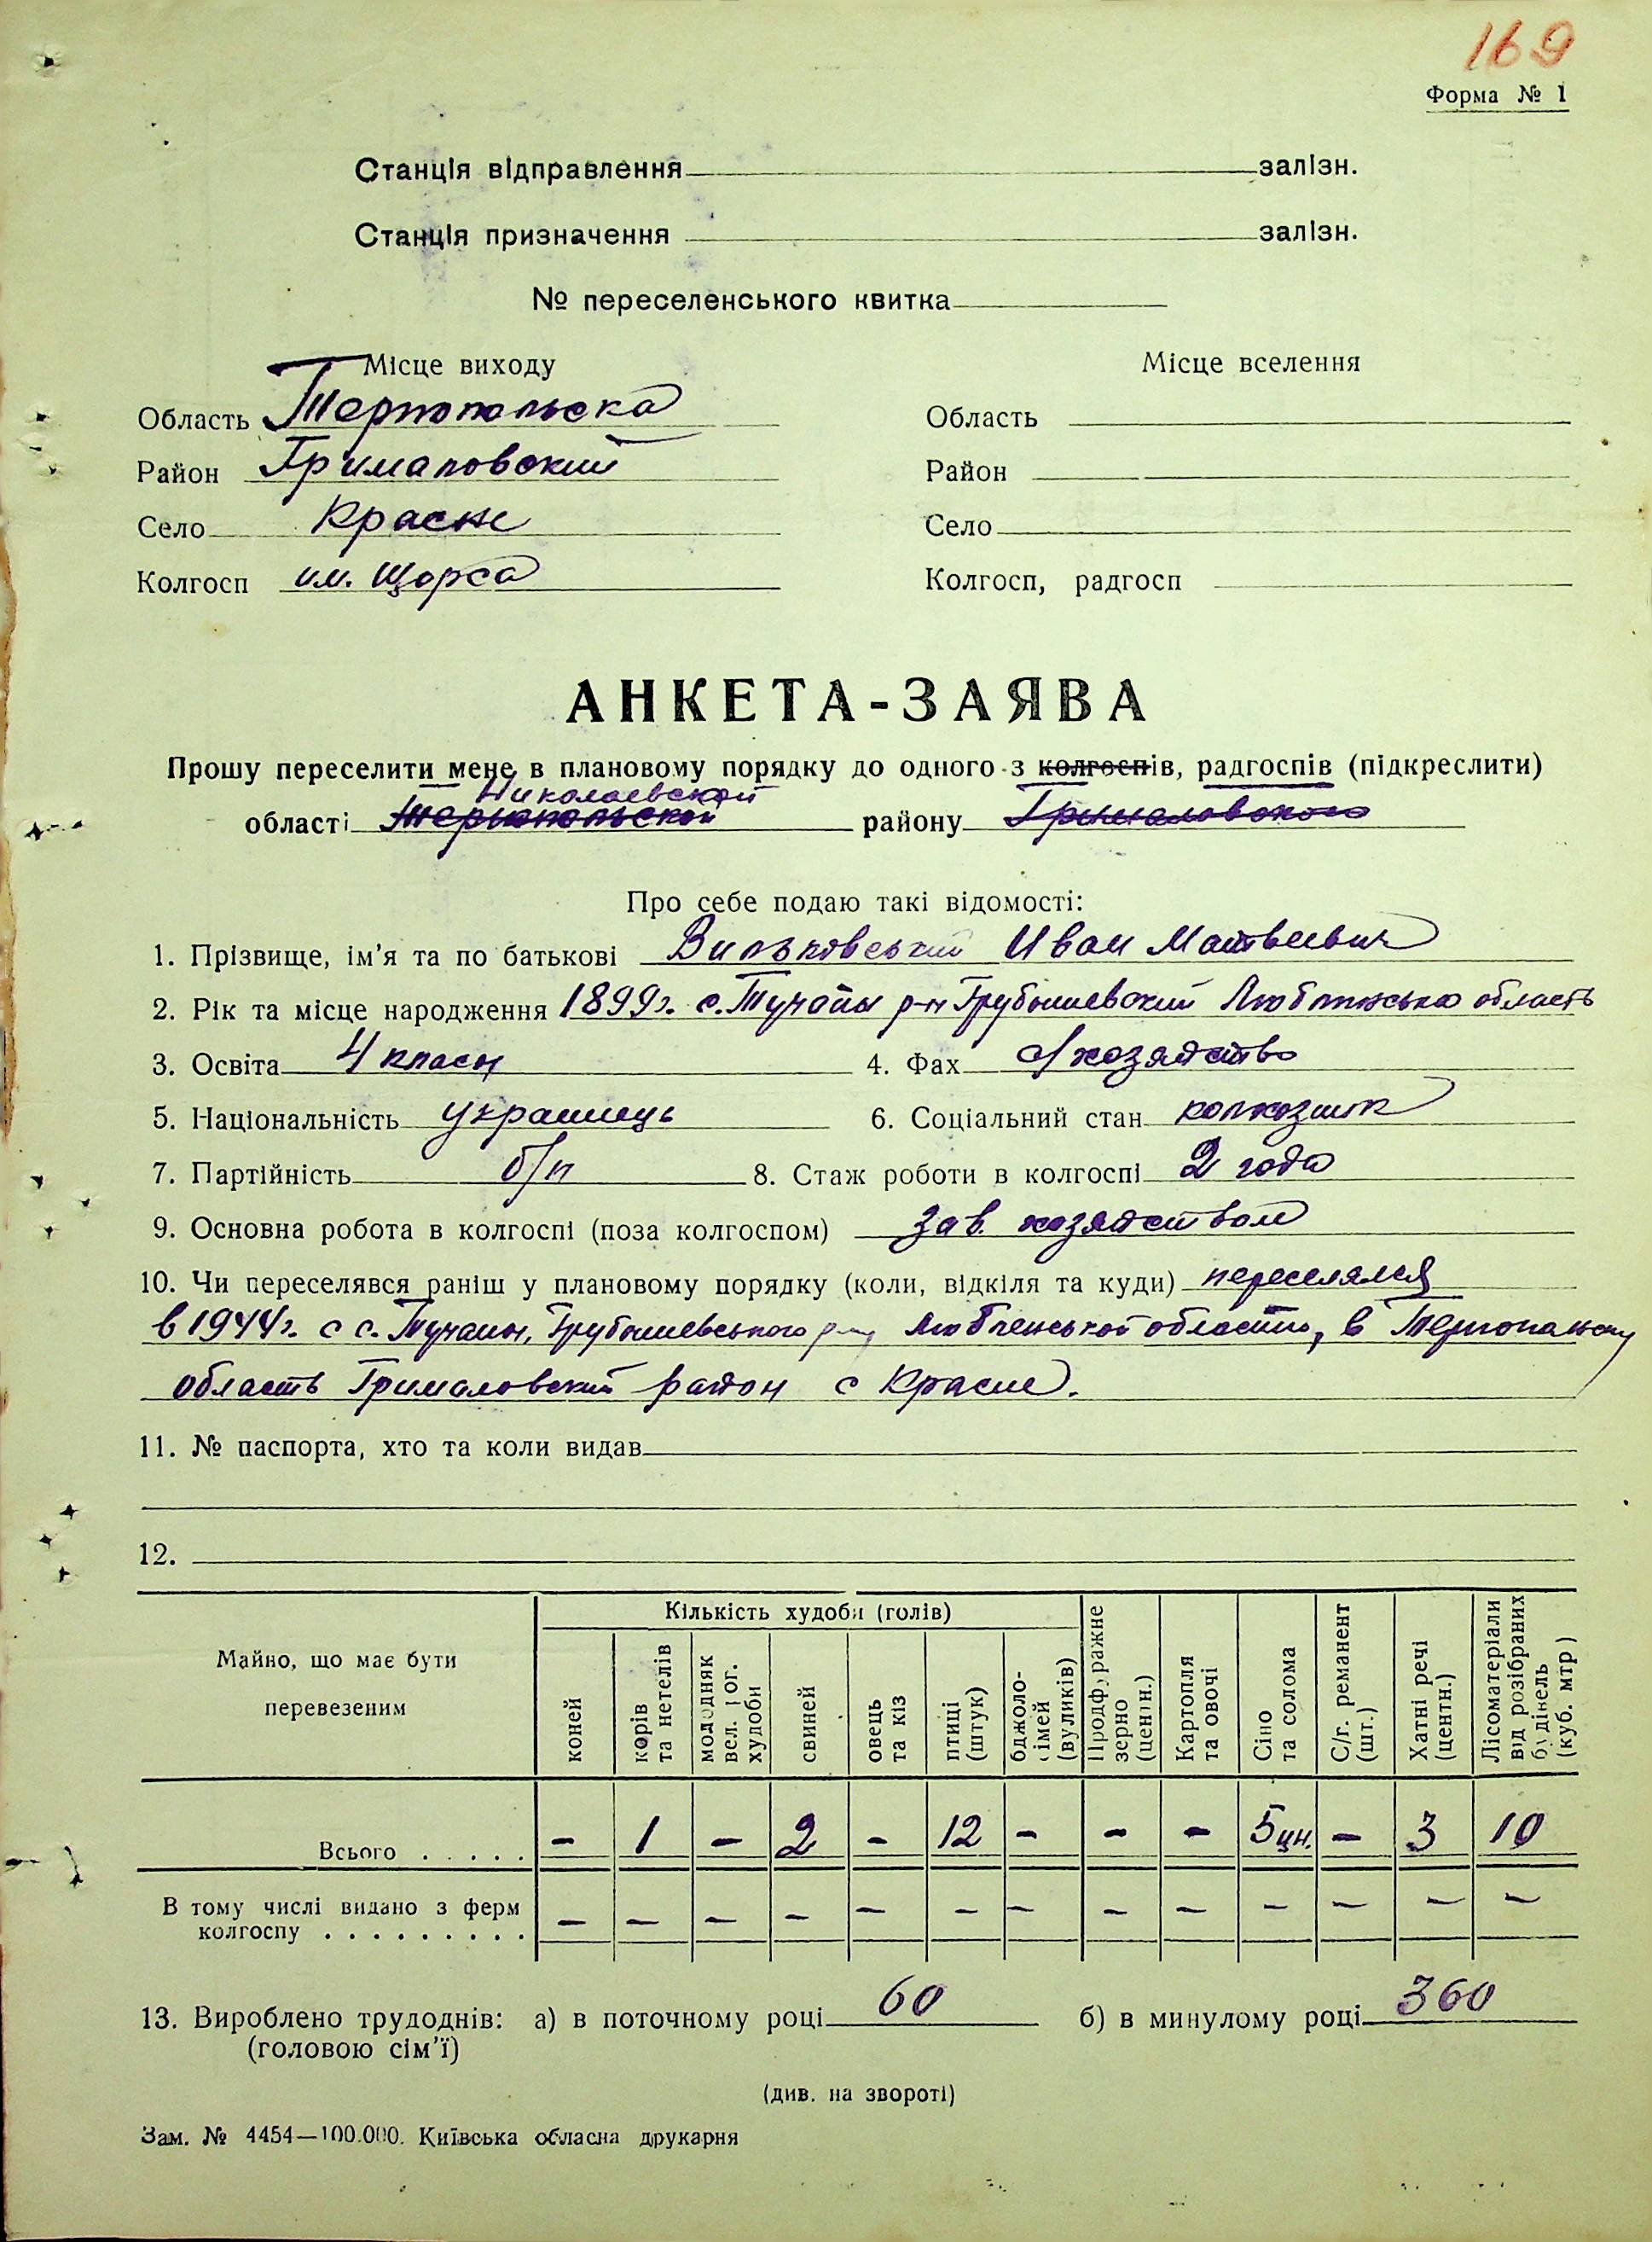 169
Форма № 1
Станція відправлення залізн.
Станція призначення залізн.
№ переселенського квитка
Місце виходу Місце вселення
Область Тернопольска Область
Район Грималовский Район
Село Красне Село
Колгосп им. Щорса Колгосп, радгосп
АНКЕТА-ЗАЯВА
Прошу переселити мене в плановому порядку до одного з колгоспів, радгоспів (підкреслити)
Николаевской
області Тернопольской району Гримайловского
Про себе подаю такі відомості:
1. Прізвище, ім'я та по батькові Вильковський Иван Матвеевич
2. Рік та місце народження 1899г. с. Тучапы р-н Грубешевский Люблинська область
3. Освіта 4 класы 4. Фах с/хозяйство
5. Національність українець 6. Соціальний стан колхозник
7. Партійність б/п 8. Стаж роботи в колгоспі 2 года
9. Основна робота в колгоспі (поза колгоспом) зав. хозяйством
10. Чи переселявся раніш у плановому порядку (коли, відкіля та куди) переселялся
в 1944г. с с. Тучапы, Грубешевського р-ну Любленськой області, в Тернопольску
область Грималовский район с Красне.
11. № паспорта, хто та коли видав
12.
Майно, що має бути перевезеним
Кількість худоби (голів)
коней
корів та нетелів
молодняк вел. рог. худоби
свиней
овець та кіз
птиці (штук)
бджолосімей (вуликів)
Продфуражне зерно (центн.)
Картопля та овочі
Сіно та солома
С/г. реманент (шт.)
Хатні речі (центн.)
Лісоматеріали від розібраних будівель (куб. мтр)
Всього . . . . . – 1 – 2 – 12 – – – 5 цн. – 3 10
В тому числі видано з ферм
колгоспу . . . . . . . . . – – – – – – – – – – – – –
13. Вироблено трудоднів: а) в поточному році 60 б) в минулому році 360
(головою сім'ї)
(див. на звороті)
Зам. № 4454—100.000. Київська обласна друкарня